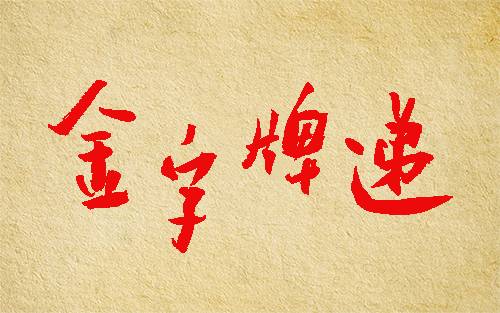 金字牌递